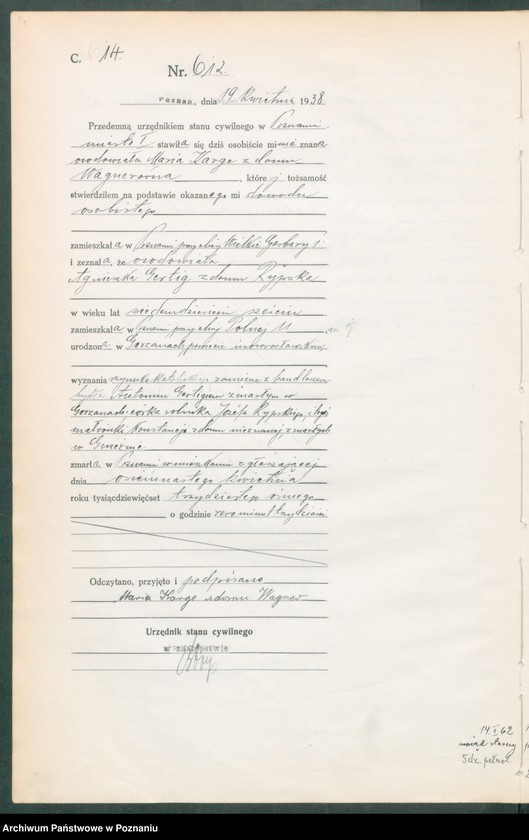 C. 14.
Nr. 612.
Poznań, dnia 19 kwietnia 1938.
Przedemną urzędnikiem stanu cywilnego w Poznaniu
miasto I stawiła się dziś osobiście mi nie znana
owdowiała Maria Karge z domu
Wagnerówna, której tożsamość
stwierdziłem na podstawie okazanego mi dowodu
osobistego
zamieszkała w Poznaniu przy ulicy Wielkie Garbary
i zeznała, że owdowiała
Agnieszka Gertig z domu Rypska
w wieku lat siedemdziesięciu sześciu
zamieszkała w Poznaniu przy ulicy Polnej 11
urodzona w powiecie inowrocławskim
wyznania rzymsko katolickiego zamężna z handlarzem
bydła Gertigiem zmarłym w
córka rolnika Józefa Rypskiego i tegoż
małżonki Konstancji z domu nieznanej zmarłych
w
zmarła w Poznaniu w mieszkaniu zgłaszającej
dnia osiemnastego kwietnia
roku tysiącdziewięćset trzydziestego ósmego
o godzinie zero minut trzydzieści
Odczytano, przyjęto i podpisano
Maria Karge z domu Wagner
Urzędnik stanu cywilnego
w zastępstwie
14.I.62
Archiwum Państwowe w Poznaniu